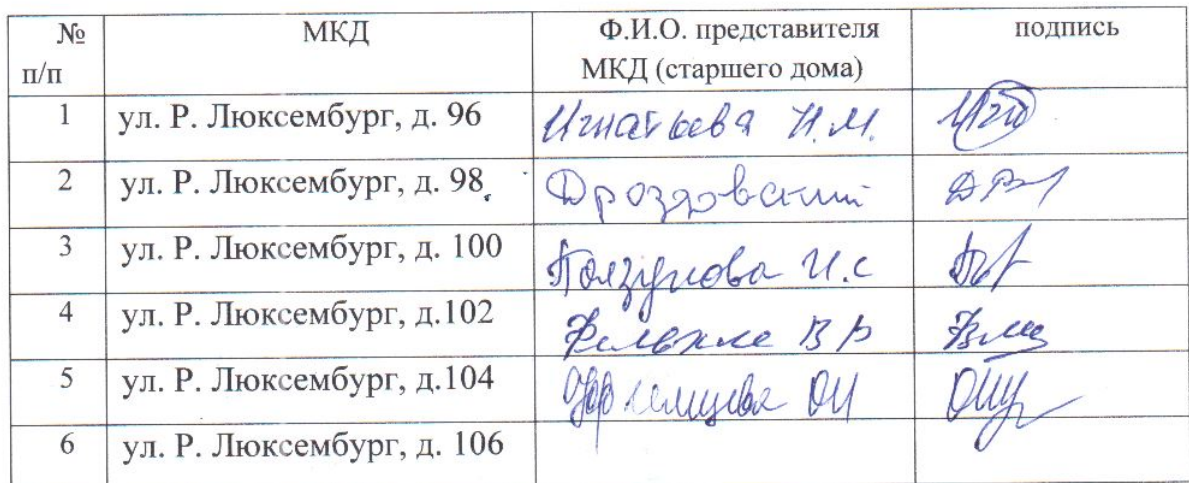 № п/п МКД Ф.И.О. представителя МКД (старшего дома) подпись
1 ул. Р. Люксембург, д. 96 Игнатьева Н.М.
2 ул. Р. Люксембург, д. 98 Дроздовский
3 ул. Р. Люксембург, д. 100 Ползунова И.С
4 ул. Р. Люксембург, д.102 В Р
5 ул. Р. Люксембург, д.104 ОИ
6 ул. Р. Люксембург, д. 106